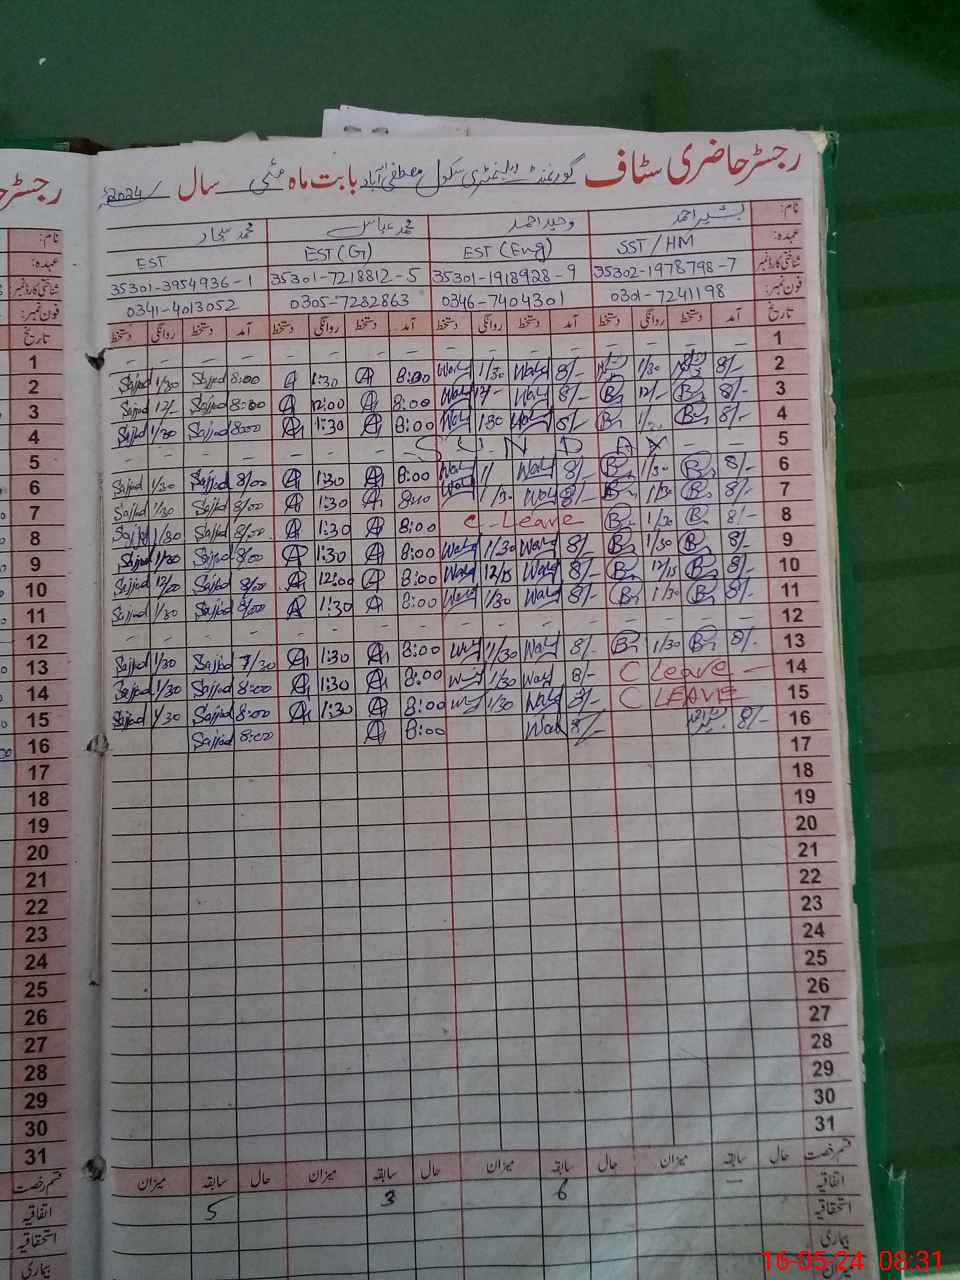 رجسٹر حاضری سٹاف گورنمنٹ ایلیمنٹری سکول مصطفی آباد بابت ماہ مئی سال 2024ء
نام: بشیر احمد وحید احمد محمد عباس محمد سجاد
عہدہ: SST/HM EST (Eng) EST (G) EST
شناختی کارڈ نمبر 35302-1978798-7 35301-1918928-9 35301-7218812-5 35301-3954936-1
فون نمبر: 0301-7241198 0346-7404301 0305-7282863 0341-4013052
تاریخ آمد دستخط روانگی دستخط آمد دستخط روانگی دستخط آمد دستخط روانگی دستخط آمد دستخط روانگی دستخط
1 - - - - - - - - - - - -
2 8/- 1/30 8/- 1/30 8:00 1:30 8:00 Sajjad 1/30 Sajjad
3 8/- 12/- 8/- 12/- 8:00 12:00 8:00 Sajjad 12/- Sajjad
4 8/- 8/- 1/30 8:00 1:30 8:00 Sajjad 1/30 Sajjad
5 - - SUNDAY - - - -
6 8/- 1/30 8/- 8:00 1:30 8/00 Sajjad 1/30 Sajjad
7 8/- 1/30 8/- 1/30 8:00 1:30 8/00 Sajjad 1/30 Sajjad
8 8/- 1/30 C-Leave 8:00 1:30 8/00 Sajjad 1/30 Sajjad
9 8/- 1/30 8/- 1/30 8:00 1:30 8/00 Sajjad 1/30 Sajjad
10 8/- 12/15 8/- 12/15 8:00 12:00 8/00 Sajjad 12/00 Sajjad
11 8/- 1/30 8/- 1/30 8:00 1:30 8/00 Sajjad 1/30 Sajjad
12 - - - - - - - - - - - -
13 8/- 1/30 8/- 1/30 8:00 1:30 7/30 Sajjad 1/30 Sajjad
14 C Leave 8/- 1/30 8:00 1:30 8:00 Sajjad 1/30 Sajjad
15 C LEAVE 8/- 1/30 8:00 1:30 8:00 Sajjad 1/30 Sajjad
16 8/- 8/- 8:00 8:00 Sajjad
17
18
19
20
21
22
23
24
25
26
27
28
29
30
31
قسم رخصت حال سابقہ میزان حال سابقہ میزان حال سابقہ میزان حال سابقہ میزان
اتفاقیہ - 6 3 5
استحقاقیہ
بیماری
رجسٹر
نام:
عہدہ:
شناختی کارڈ نمبر
فون نمبر:
تاریخ
1
2
3
4
5
6
7
8
9
10
11
12
13
14
15
16
17
18
19
20
21
22
23
24
25
26
27
28
29
30
31
قسم رخصت
اتفاقیہ
استحقاقیہ
بیماری
16-05-24 08:31